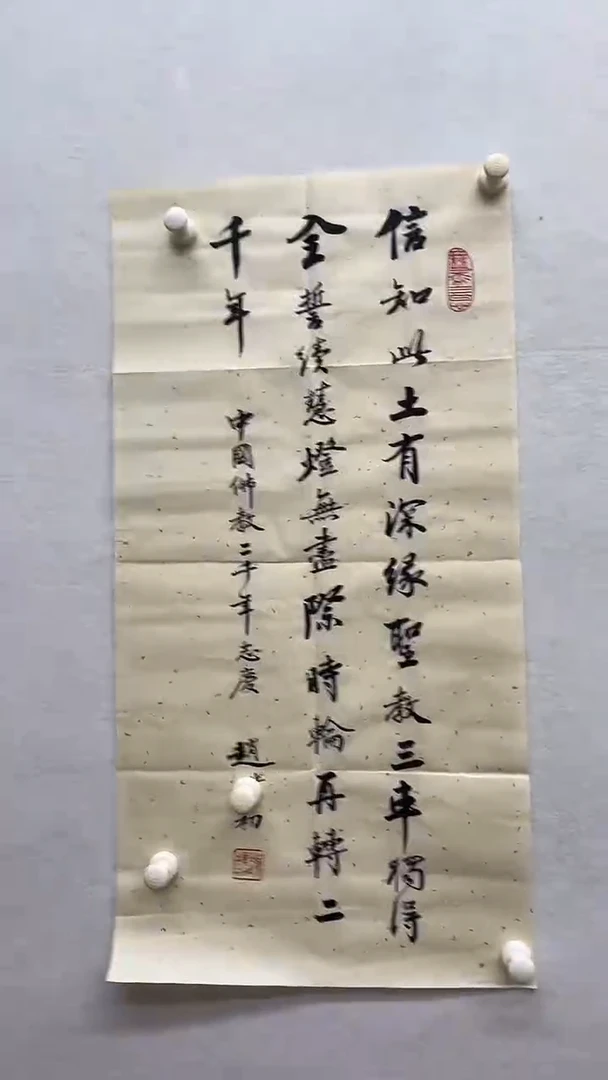 信知此土有深缘聖教三車獨得
全誓续慧燈無盡際時輪再轉二
千年
中國佛教二千年志慶
趙 初